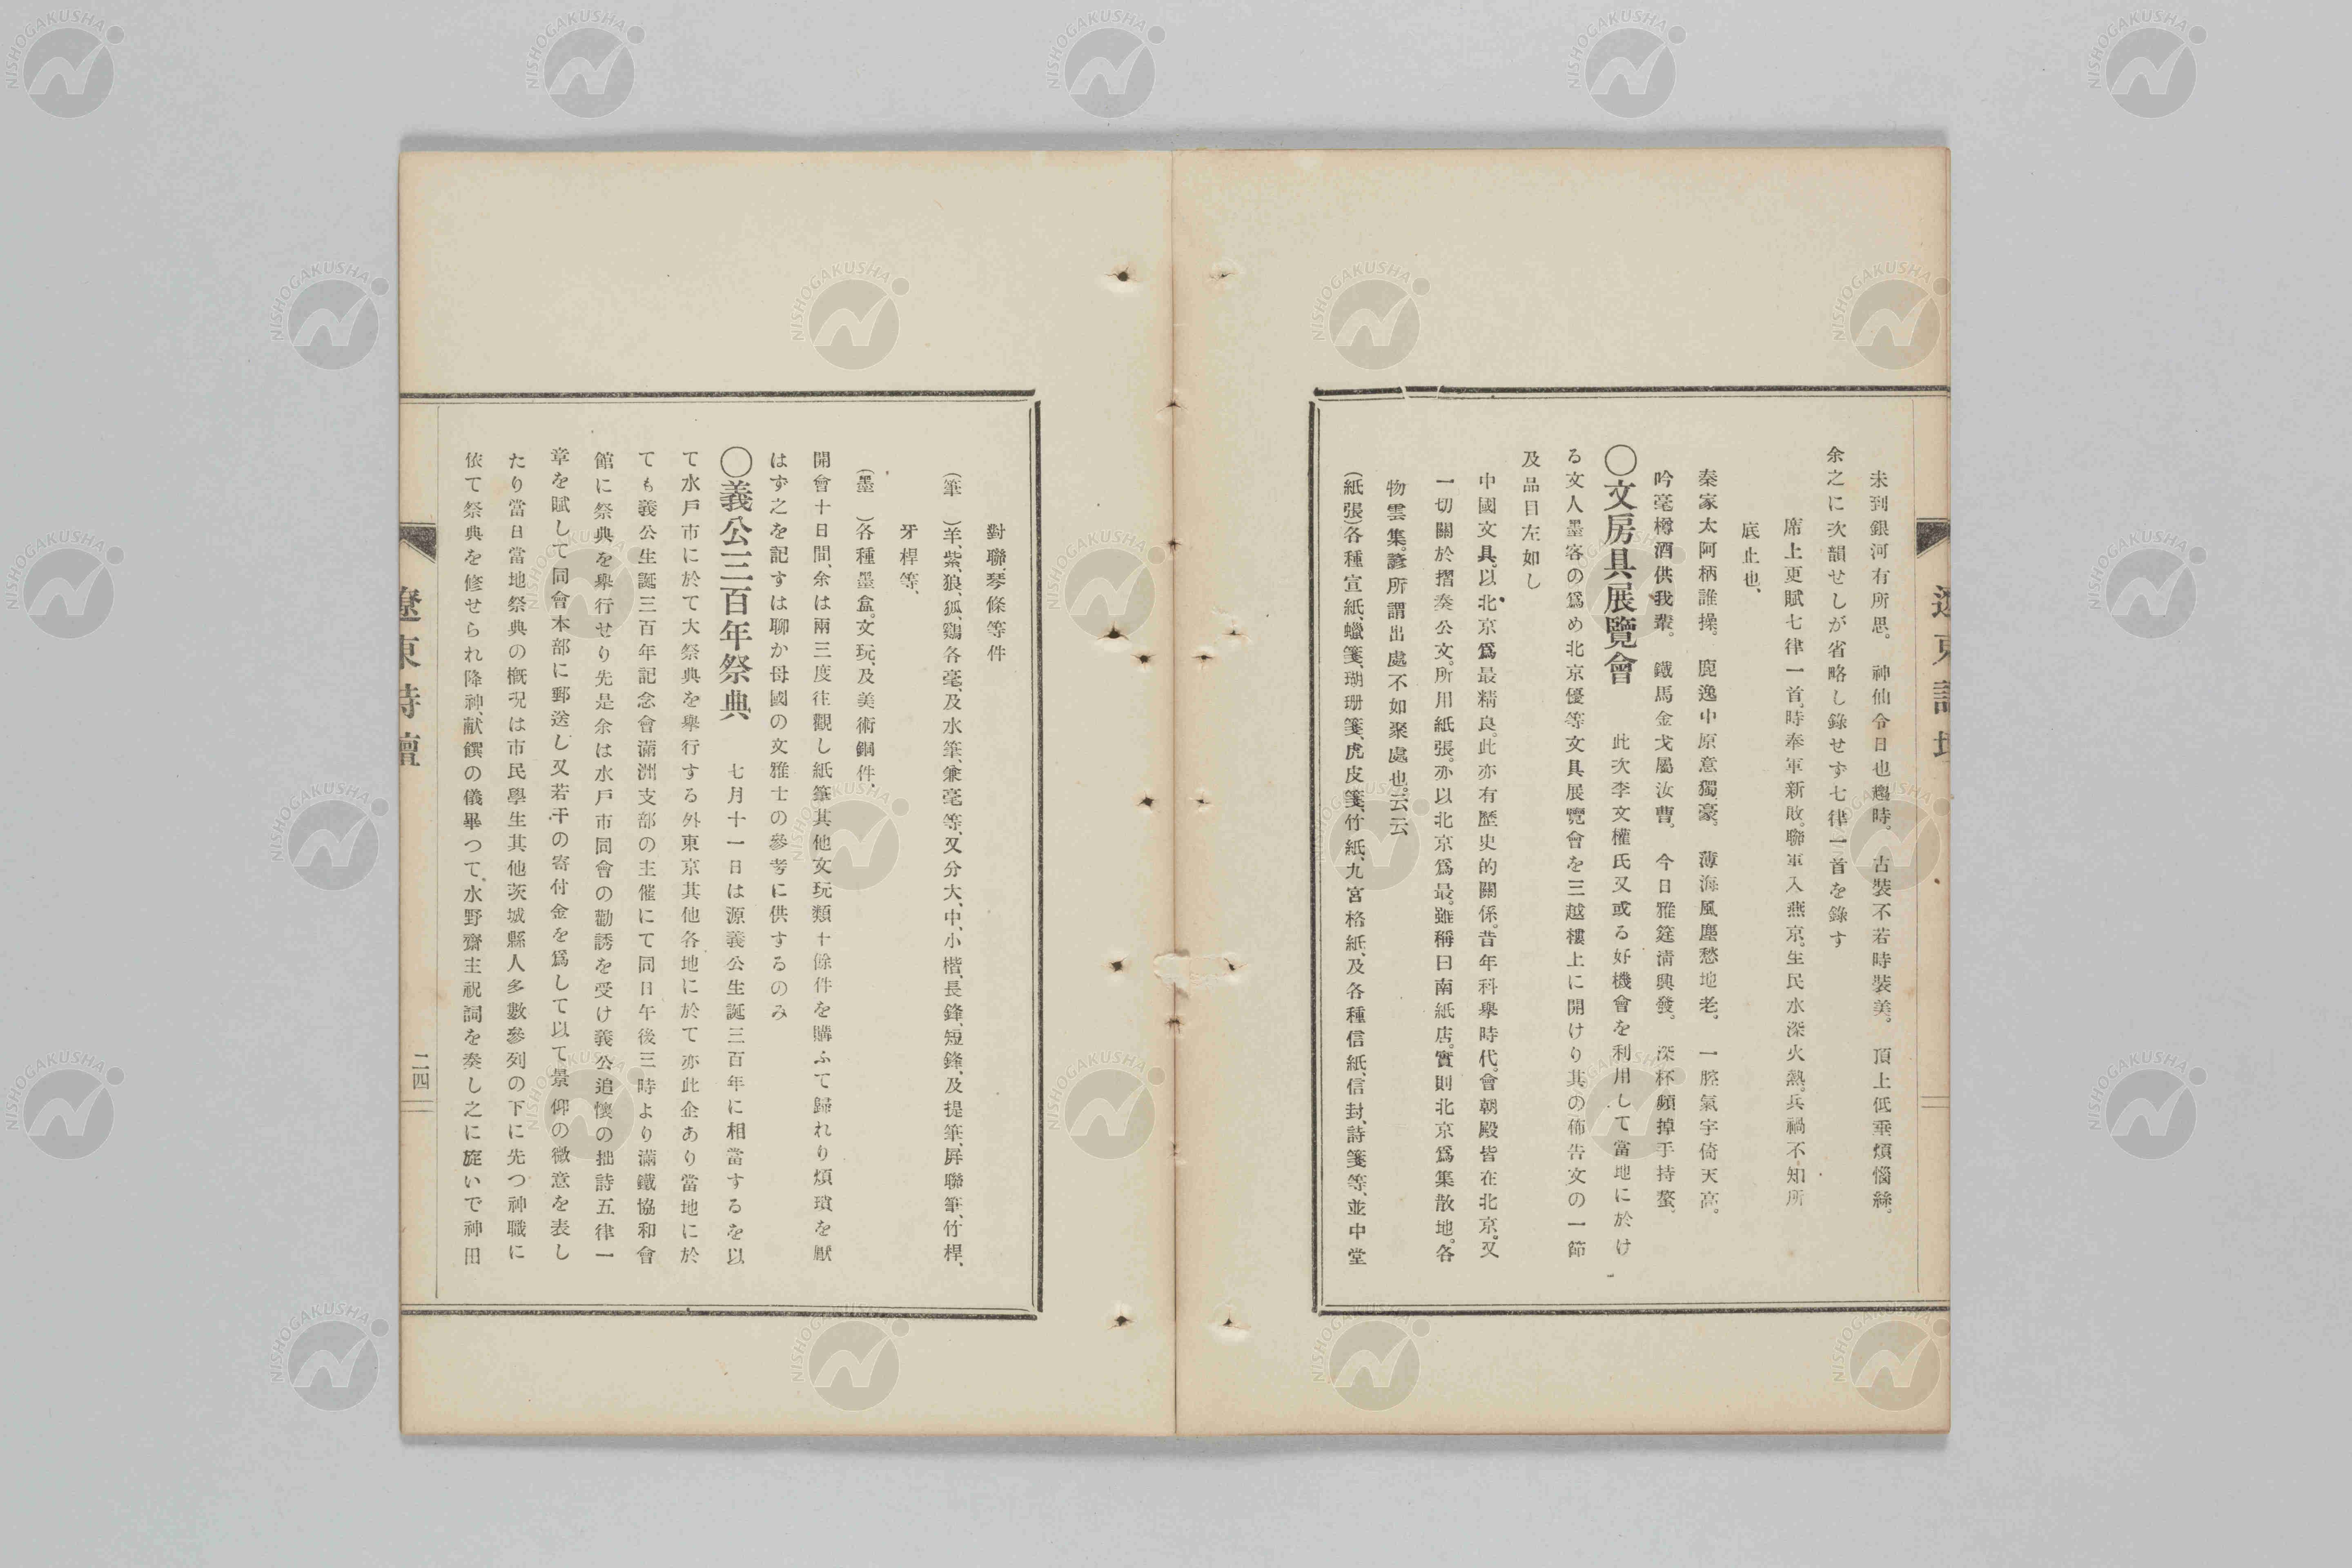 未到銀河有所思。 神仙今日也趨時。 古裝不若時裝美。 頂上低垂煩惱絲。
余之に次韻せしが省略し錄せず七律一首を錄す
席上更賦七律一首、時奉軍新敗。聯軍入燕京。生民水深火熱。兵禍不知所
底止也、
秦家太阿柄誰操。 鹿逸中原意獨豪。 薄海風塵愁地老。 一腔氣宇倚天高。
吟毫樽酒供我輩。 鐵馬金戈屬汝曹。 今日雅筵淸興發。 深杯頻掉手持螯。
◯文房具展覽會 此次李文權氏又或る好機會を利用して當地に於け
る文人墨客の爲め北京優等文具展覽會を三越樓上に開けり其の佈吿文の一節
及品目左如し
中國文具、以北京爲最精良。此亦有歷史的關係。昔年科舉時代。會朝殿皆在北京。又
一切關於摺奏公文。所用紙張。亦以北京爲最。雖稱曰南紙店。實則北京爲集散地。各
物雲集。諺所謂出處不如聚處也。云云
(紙張)各種宣紙、蠟箋、瑚珊箋、虎皮箋、竹紙、九宮格紙、及各種信紙、信封、詩箋等、並中堂
對聯、琴條等件
(筆 )羊紫、狼、狐、鷄各毫、及水筆、兼毫等、又分大、中、小楷、長鋒、短鋒、及提筆、屛聯筆、竹桿、
牙桿等、
(墨 )各種墨盒。文玩、及美術銅件、
開會十日間、余は兩三度往觀し紙筆其他文玩類十餘件を購ふて歸れり煩瑣を厭
はず之を記すは聊か母國の文雅士の參考に供するのみ
◯義公三百年祭典 七月十一日は源義公生誕三百年に相當するを以
て水戶市に於て大祭典を舉行する外東京其他各地に於て亦此企あり當地に於
ても義公生誕三百年記念會滿洲支部の主催にて同日午後三時より滿鐵協和會
館に祭典を舉行せり先是余は水戶市同會の勸誘を受け義公追懷の拙詩五律一
章を賦して同會本部に郵送し又若干の寄付金を爲して以て景仰の微意を表し
たり當日當地祭典の槪況は市民學生其他茨城縣人多數參列の下に先つ神職に
依て祭典を修せられ降神、献饌の儀畢つて、水野齋主祝詞を奏し之に踵いで神田
遼東詩壇
二四